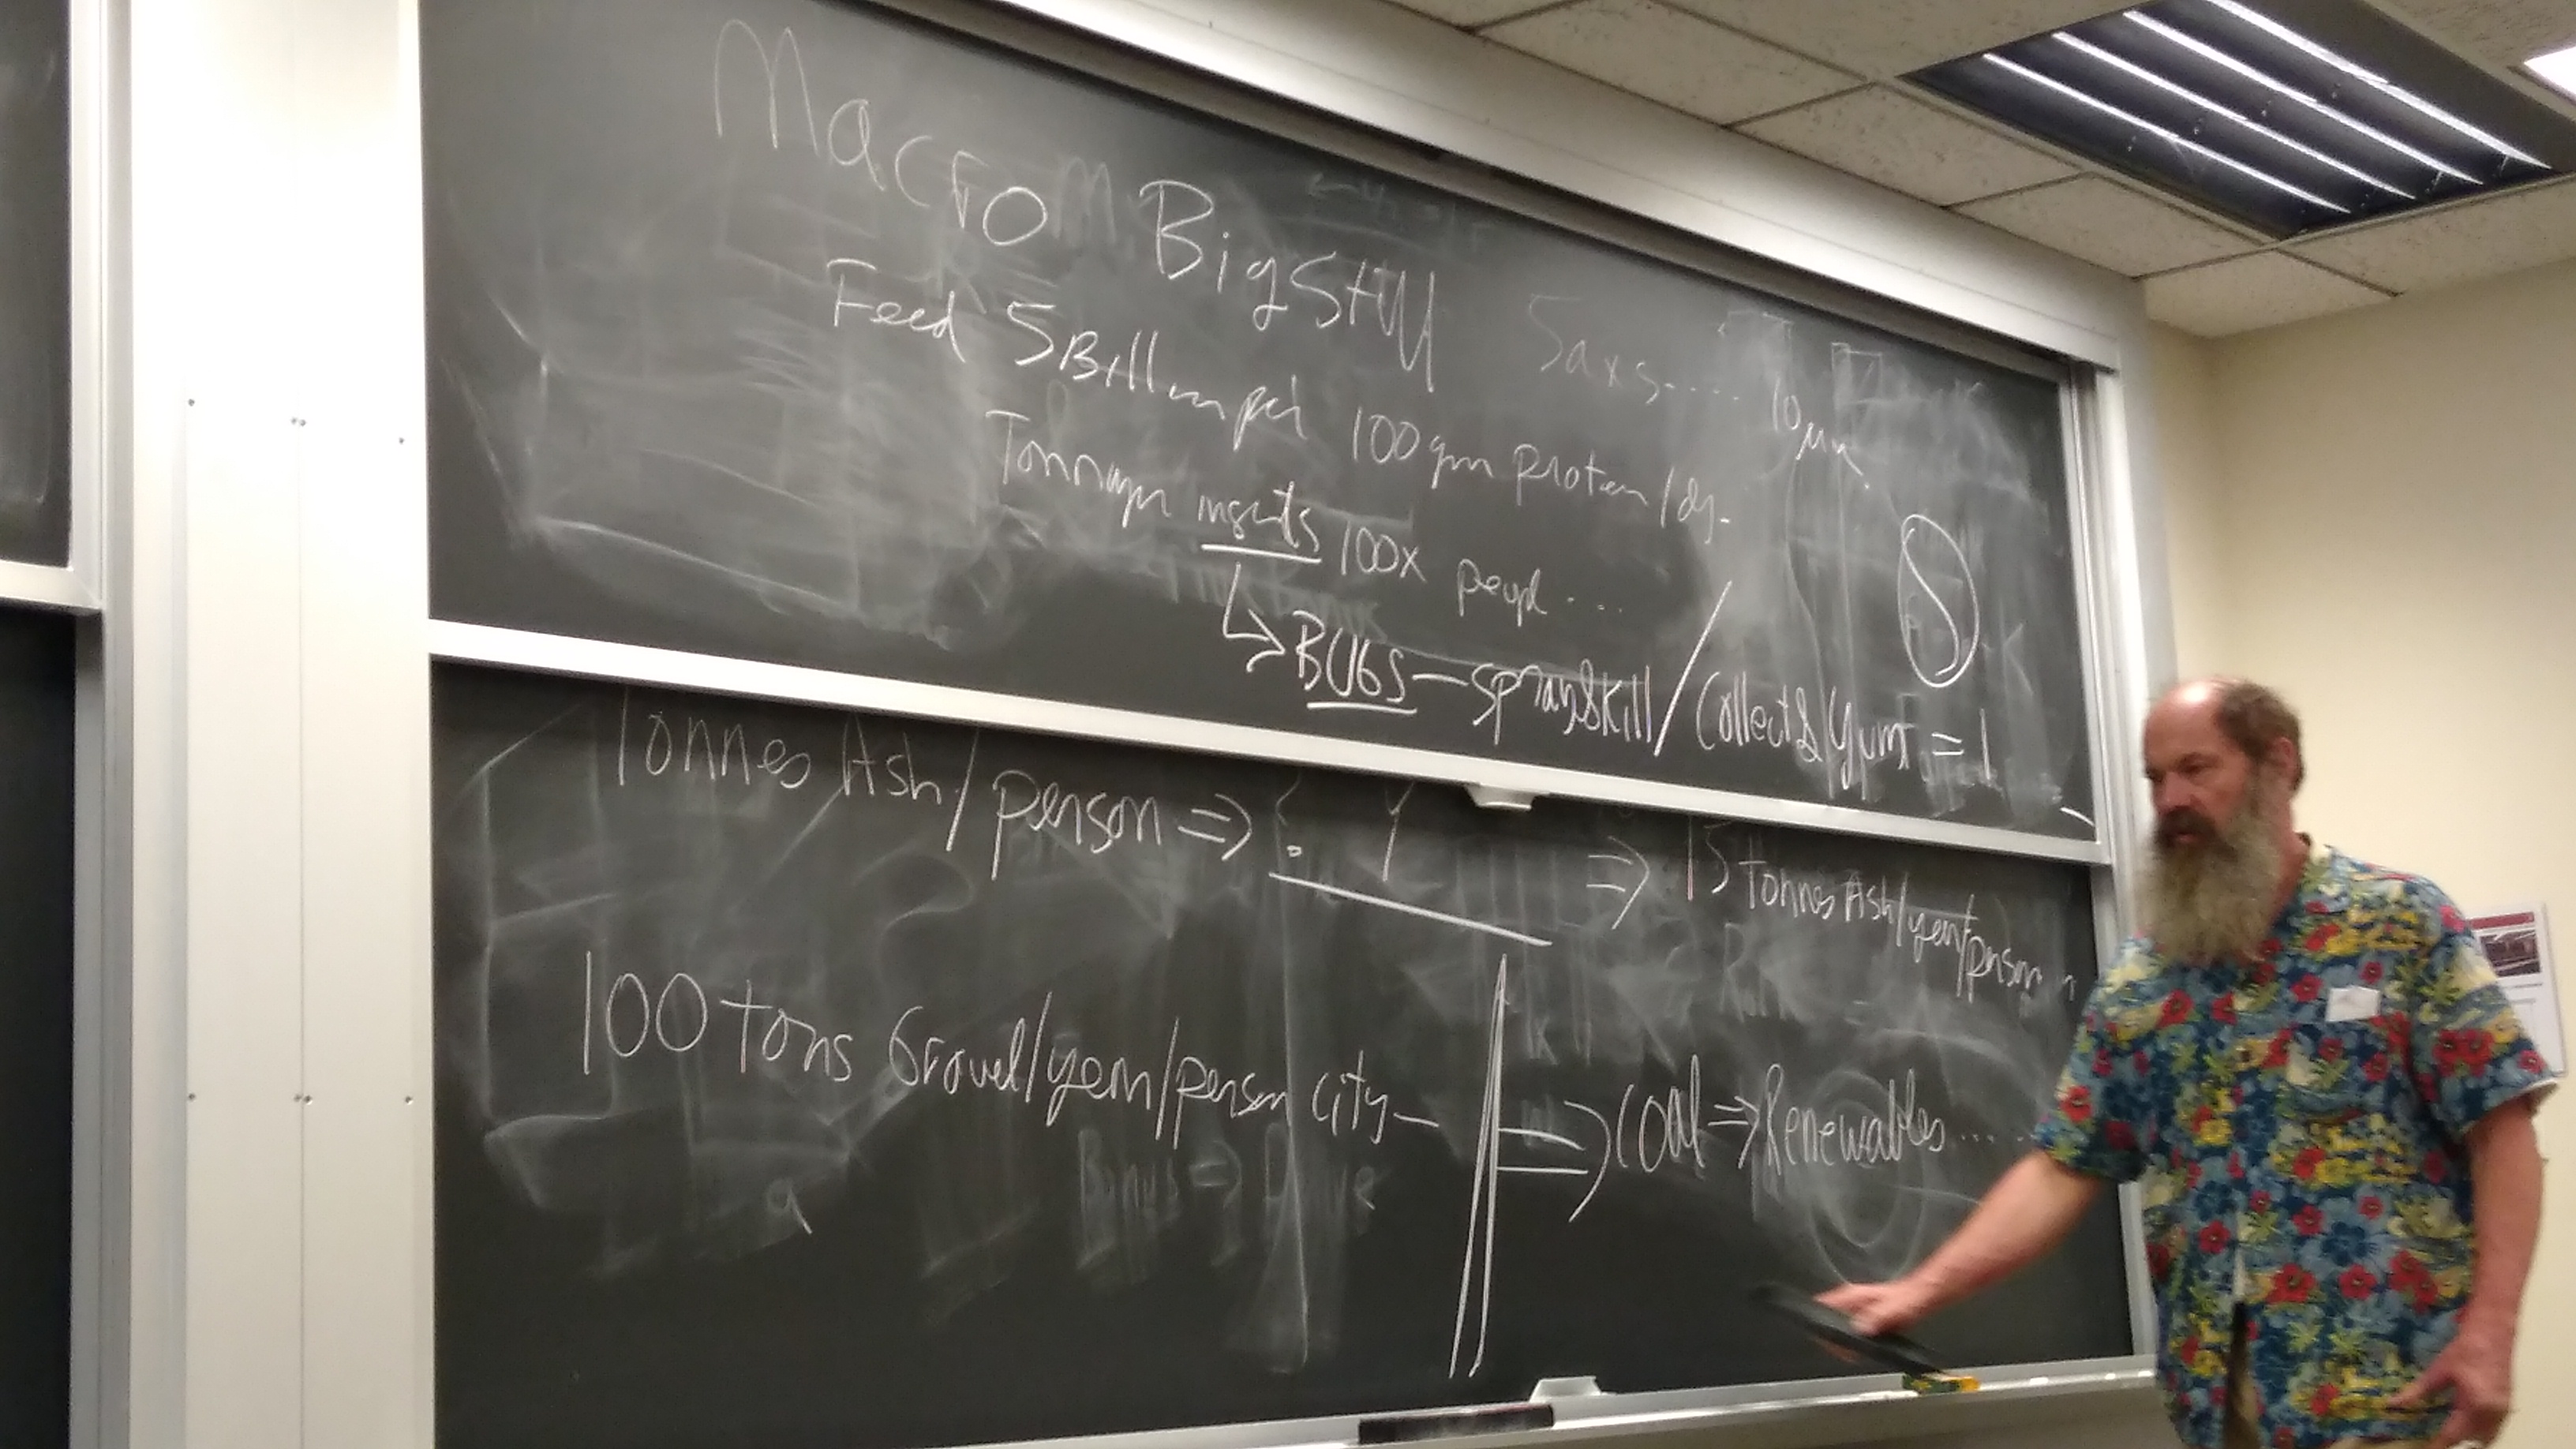 Macro Big Stuff
Feed 5 Billion 100 gm protein/dy.
5axs....
10 μm
Tonnage insects 100x peopl ....
BUGS — spray & kill / Collect & Yum = 1
Tonnes Ash/person ⇒
⇒ 15 tonnes Ash/year/person
100 tons Gravel/year/person city —
⇒ Coal ⇒ Renewables....